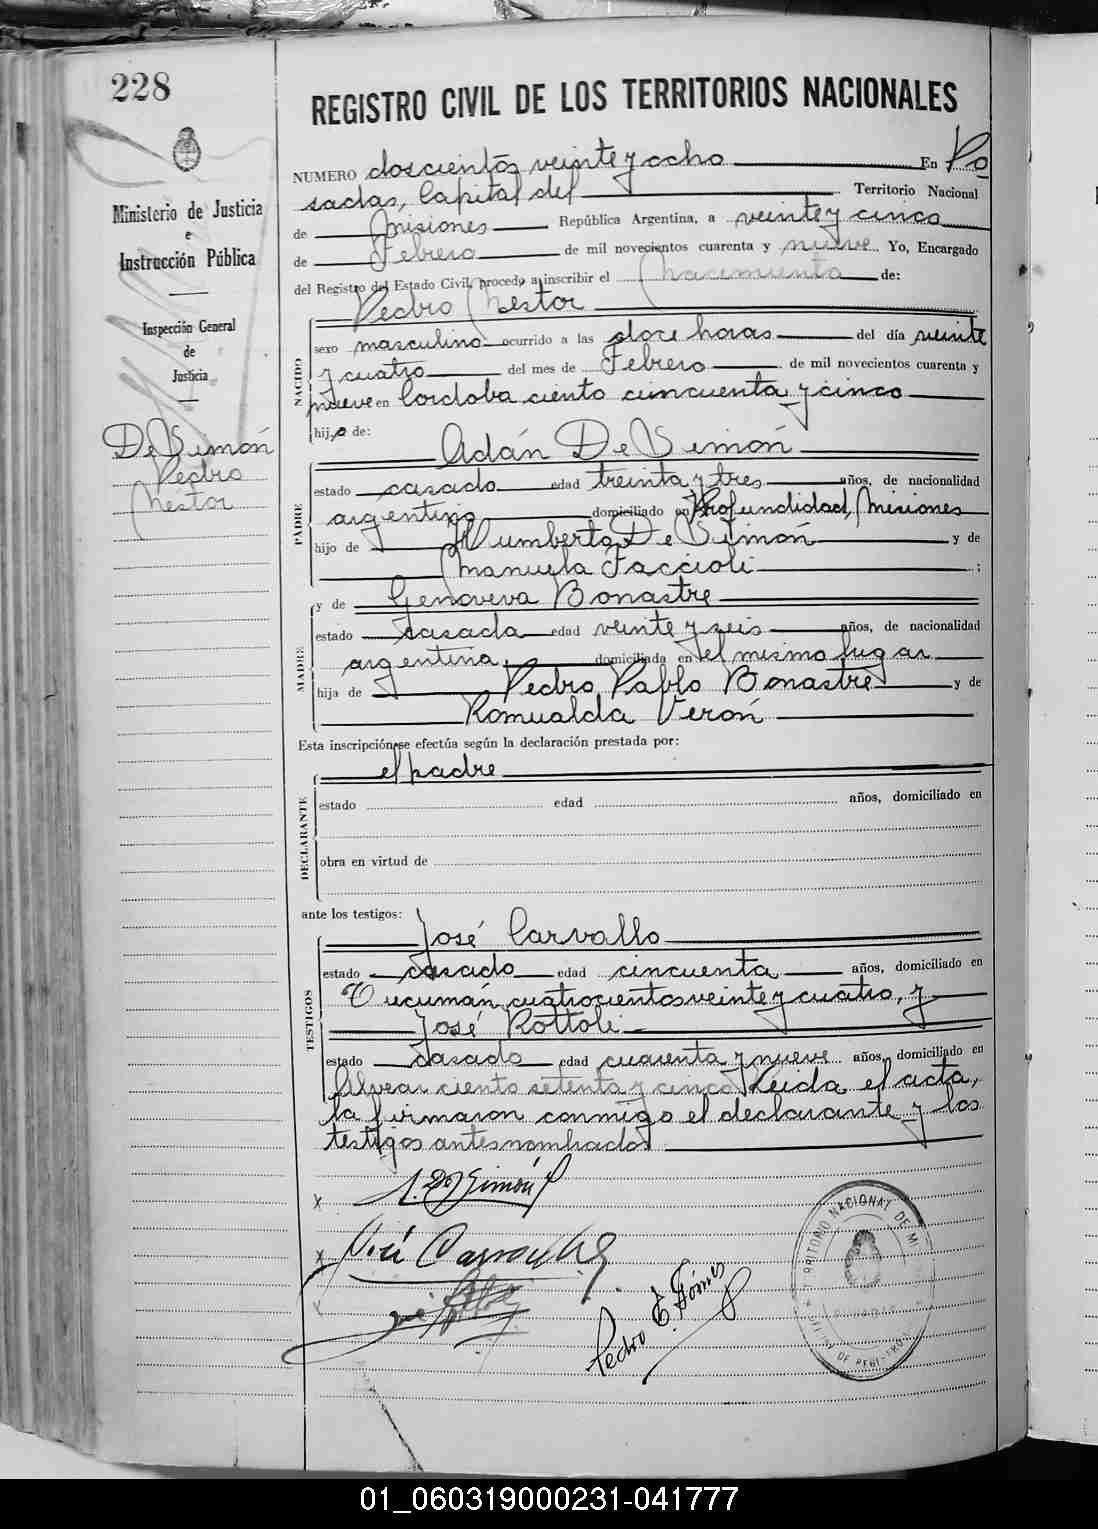 228
REGISTRO CIVIL DE LOS TERRITORIOS NACIONALES
Ministerio de Justicia
e
Instrucción Pública
Inspección General
de
Justicia
De Simón
Pedro
Néstor
NUMERO doscientos veinte y ocho En Po
sadas, Capital del Territorio Nacional
de Misiones República Argentina, a veinte y cinco
de Febrero de mil novecientos cuarenta y nueve Yo, Encargado
del Registro del Estado Civil, procedo a inscribir el Nacimiento de:
Pedro Néstor
NACIDO
sexo masculino ocurrido a las doce horas del día veinte
y cuatro del mes de Febrero de mil novecientos cuarenta y
nueve en Cordoba ciento cincuenta y cinco
hijo de:
Adán De Simón
PADRE
estado casado edad treinta y tres años, de nacionalidad
argentino domiciliado en Profundidad, Misiones
hijo de Humberto De Simón y de
Manuela Faccioli ;
y de Genoveva Bonastre
MADRE
estado casada edad veinte y seis años, de nacionalidad
argentina, domiciliada en el mismo lugar
hija de Pedro Pablo Bonastre y de
Romualda Verón
Esta inscripción se efectúa según la declaración prestada por:
el padre
DECLARANTE
estado edad años, domiciliado en
obra en virtud de
ante los testigos:
José Carvallo
TESTIGOS
estado casado edad cincuenta años, domiciliado en
Tucumán cuatrocientos veinte y cuatro, y
José Rottoli
estado casado edad cuarenta y nueve años, domiciliado en
Alvear ciento setenta y cinco Leida el acta,
la firmaron conmigo el declarante y los
testigos antes nombrados
x A. De Simón
x José Carvallo
x José
Pedro E. Gómez
TERRITORIO NACIONAL DE MI
POSADAS
01_060319000231-041777